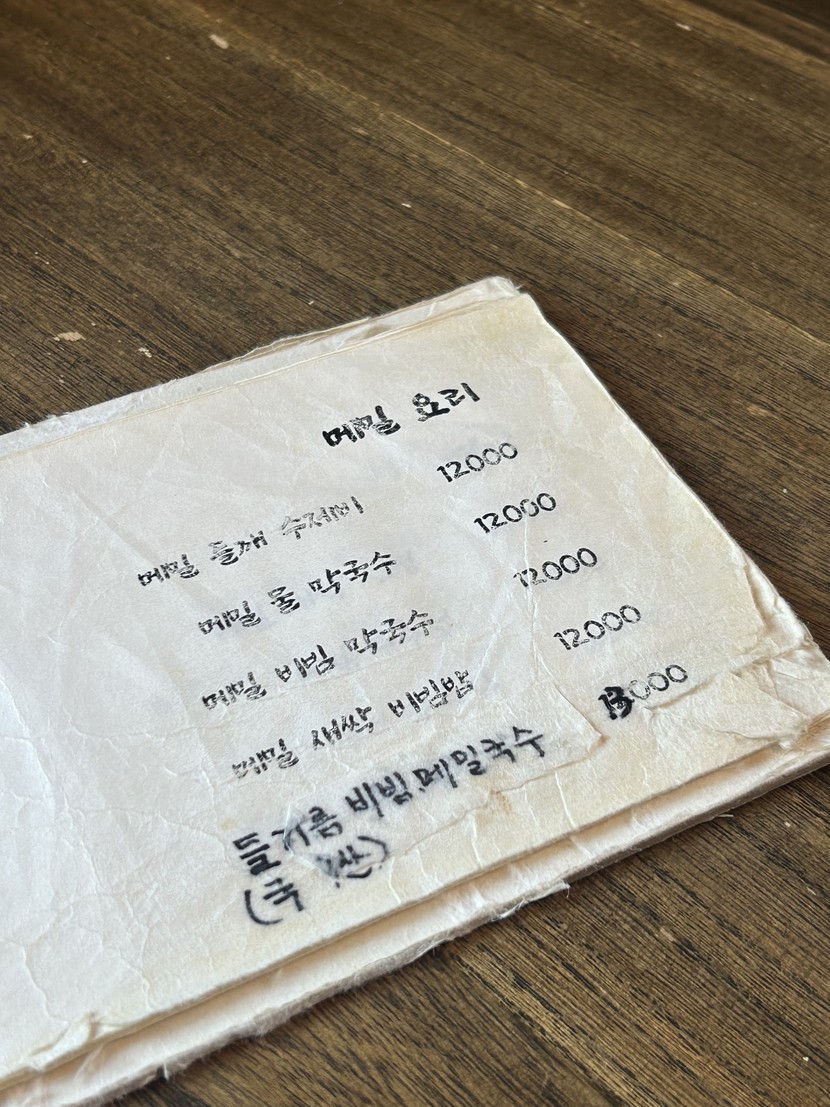 메밀 요리
메밀 들깨 수제비 12000
메밀 물 막국수 12000
메밀 비빔 막국수 12000
메밀 새싹 비빔밥 12000
들기름 비빔.메밀국수 13000
(국 산)